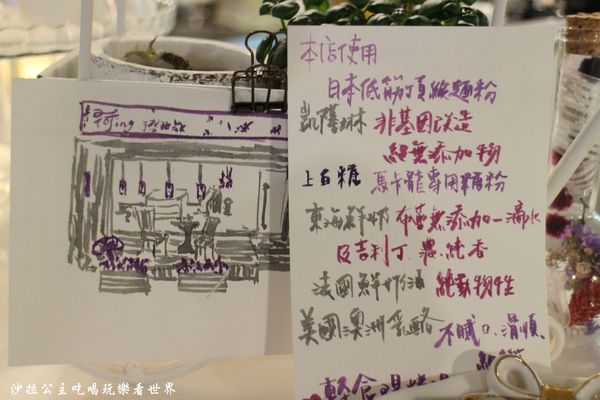 本店使用
日本低筋頂級麵粉
凱薩琳 非基因改造
絕無添加物
上白糖 馬卡龍專用糖粉
東海鮮奶 布蕾無添加一滴水
及吉利丁 濃純香
法國鮮奶油 純動物性
美國澳洲乳酪 不膩口、滑順
沙拉公主吃喝玩樂看世界